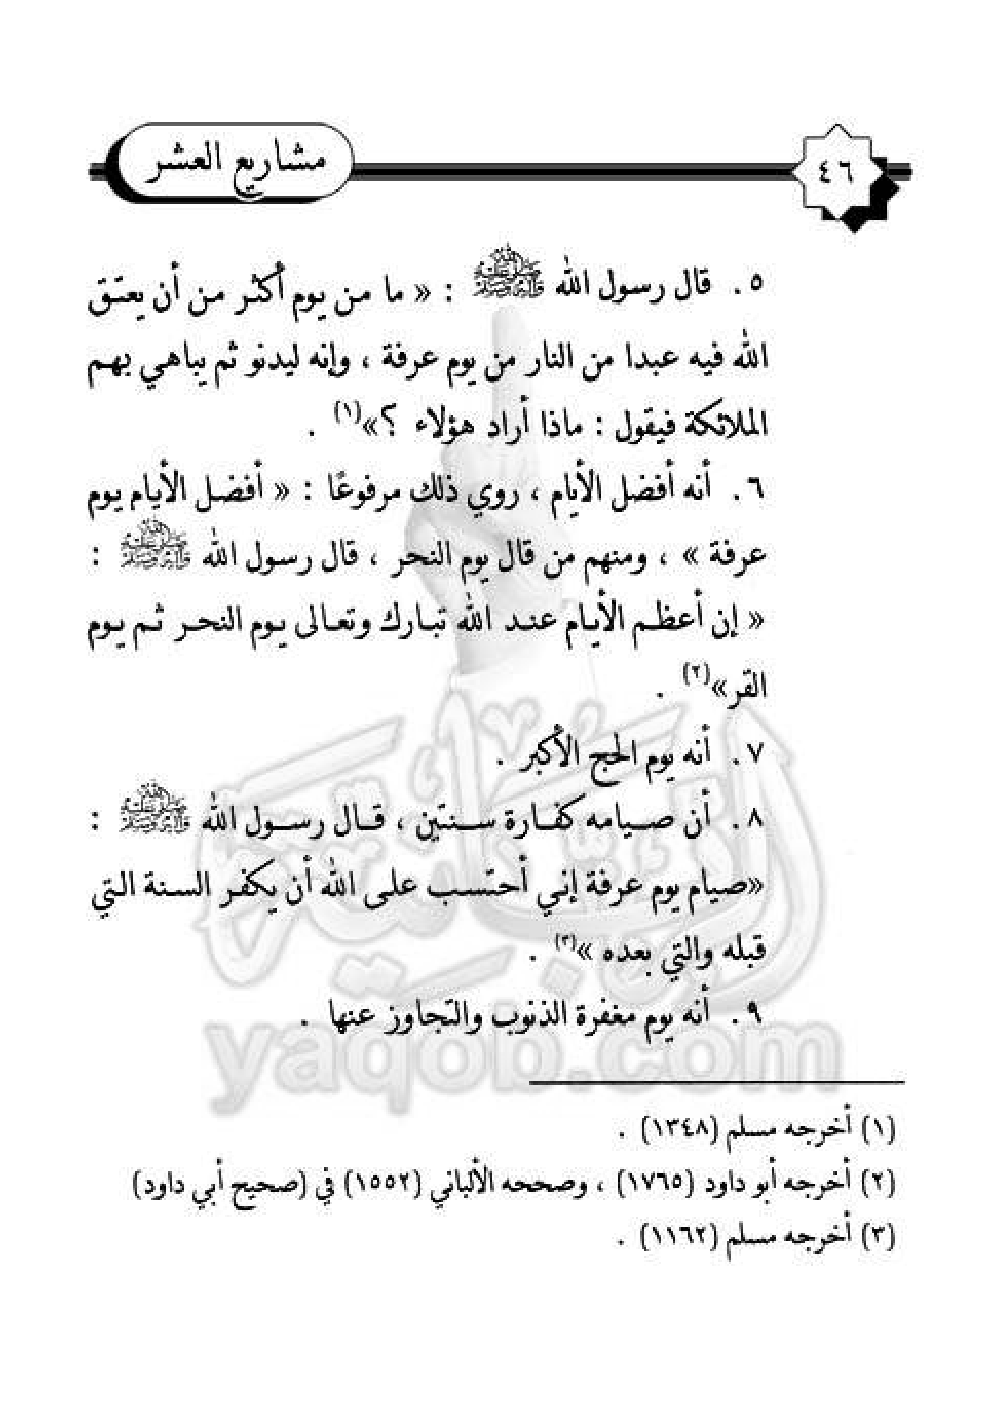 ٤٦
مشاريع العشر
٥. قال رسول الله ﷺ : « ما من يوم أكثر من أن يعتق
الله فيه عبدا من النار من يوم عرفة ، وإنه ليدنو ثم يباهي بهم
الملائكة فيقول : ماذا أراد هؤلاء ؟»(١) .
٦. أنه أفضل الأيام ، روي ذلك مرفوعًا : « أفضل الأيام يوم
عرفة » ، ومنهم من قال يوم النحر ، قال رسول الله ﷺ :
« إن أعظم الأيام عند الله تبارك وتعالى يوم النحر ثم يوم
القر»(٢) .
٧. أنه يوم الحج الأكبر .
٨. أن صيامه كفارة سنتين ، قال رسول الله ﷺ :
«صيام يوم عرفة إني أحتسب على الله أن يكفر السنة التي
قبله والتي بعده »(٣) .
٩. أنه يوم مغفرة الذنوب والتجاوز عنها .
yaqob.com
(١) أخرجه مسلم (١٣٤٨) .
(٢) أخرجه أبو داود (١٧٦٥) ، وصححه الألباني (١٥٥٢) في (صحيح أبي داود)
(٣) أخرجه مسلم (١١٦٢) .